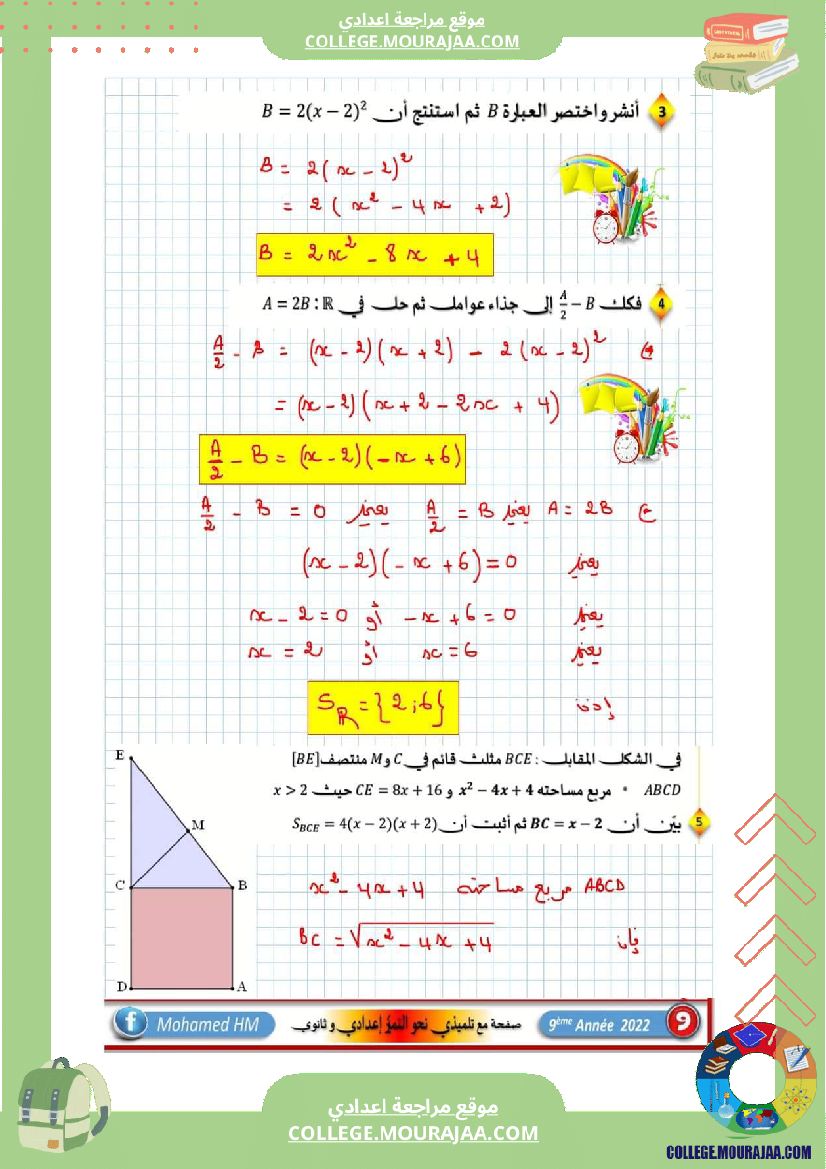 موقع مراجعة اعدادي
COLLEGE.MOURAJAA.COM
3 أنشر واختصر العبارة B ثم استنتج أن B = 2(x − 2)²
B = 2(x − 2)²
= 2(x² − 4x + 2)
B = 2x² − 8x + 4
4 فكك A/2 − B إلى جذاء عوامل ثم حل في ℝ : A = 2B
A/2 − B = (x − 2)(x + 2) − 2(x − 2)²
= (x − 2)(x + 2 − 2x + 4)
A/2 − B = (x − 2)(−x + 6)
A = 2B يعني A/2 = B يعني A/2 − B = 0
يعني (x − 2)(−x + 6) = 0
يعني x − 2 = 0 أو −x + 6 = 0
يعني x = 2 أو x = 6
إذن S_ℝ = {2 ; 6}
في الشكل المقابل : BCE مثلث قائم في C و M منتصف [BE]
ABCD مربع مساحته x² − 4x + 4 و CE = 8x + 16 حيث x > 2
5 بيّن أن BC = x − 2 ثم أثبت أن S_BCE = 4(x − 2)(x + 2)
E
M
C
B
D
A
ABCD مربع مساحته x² − 4x + 4
فإن BC = √(x² − 4x + 4)
Mohamed HM
صفحة مع تلميذي نحو التميز إعدادي و ثانوي
9ème Année 2022
9
موقع مراجعة اعدادي
COLLEGE.MOURAJAA.COM
COLLEGE.MOURAJAA.COM